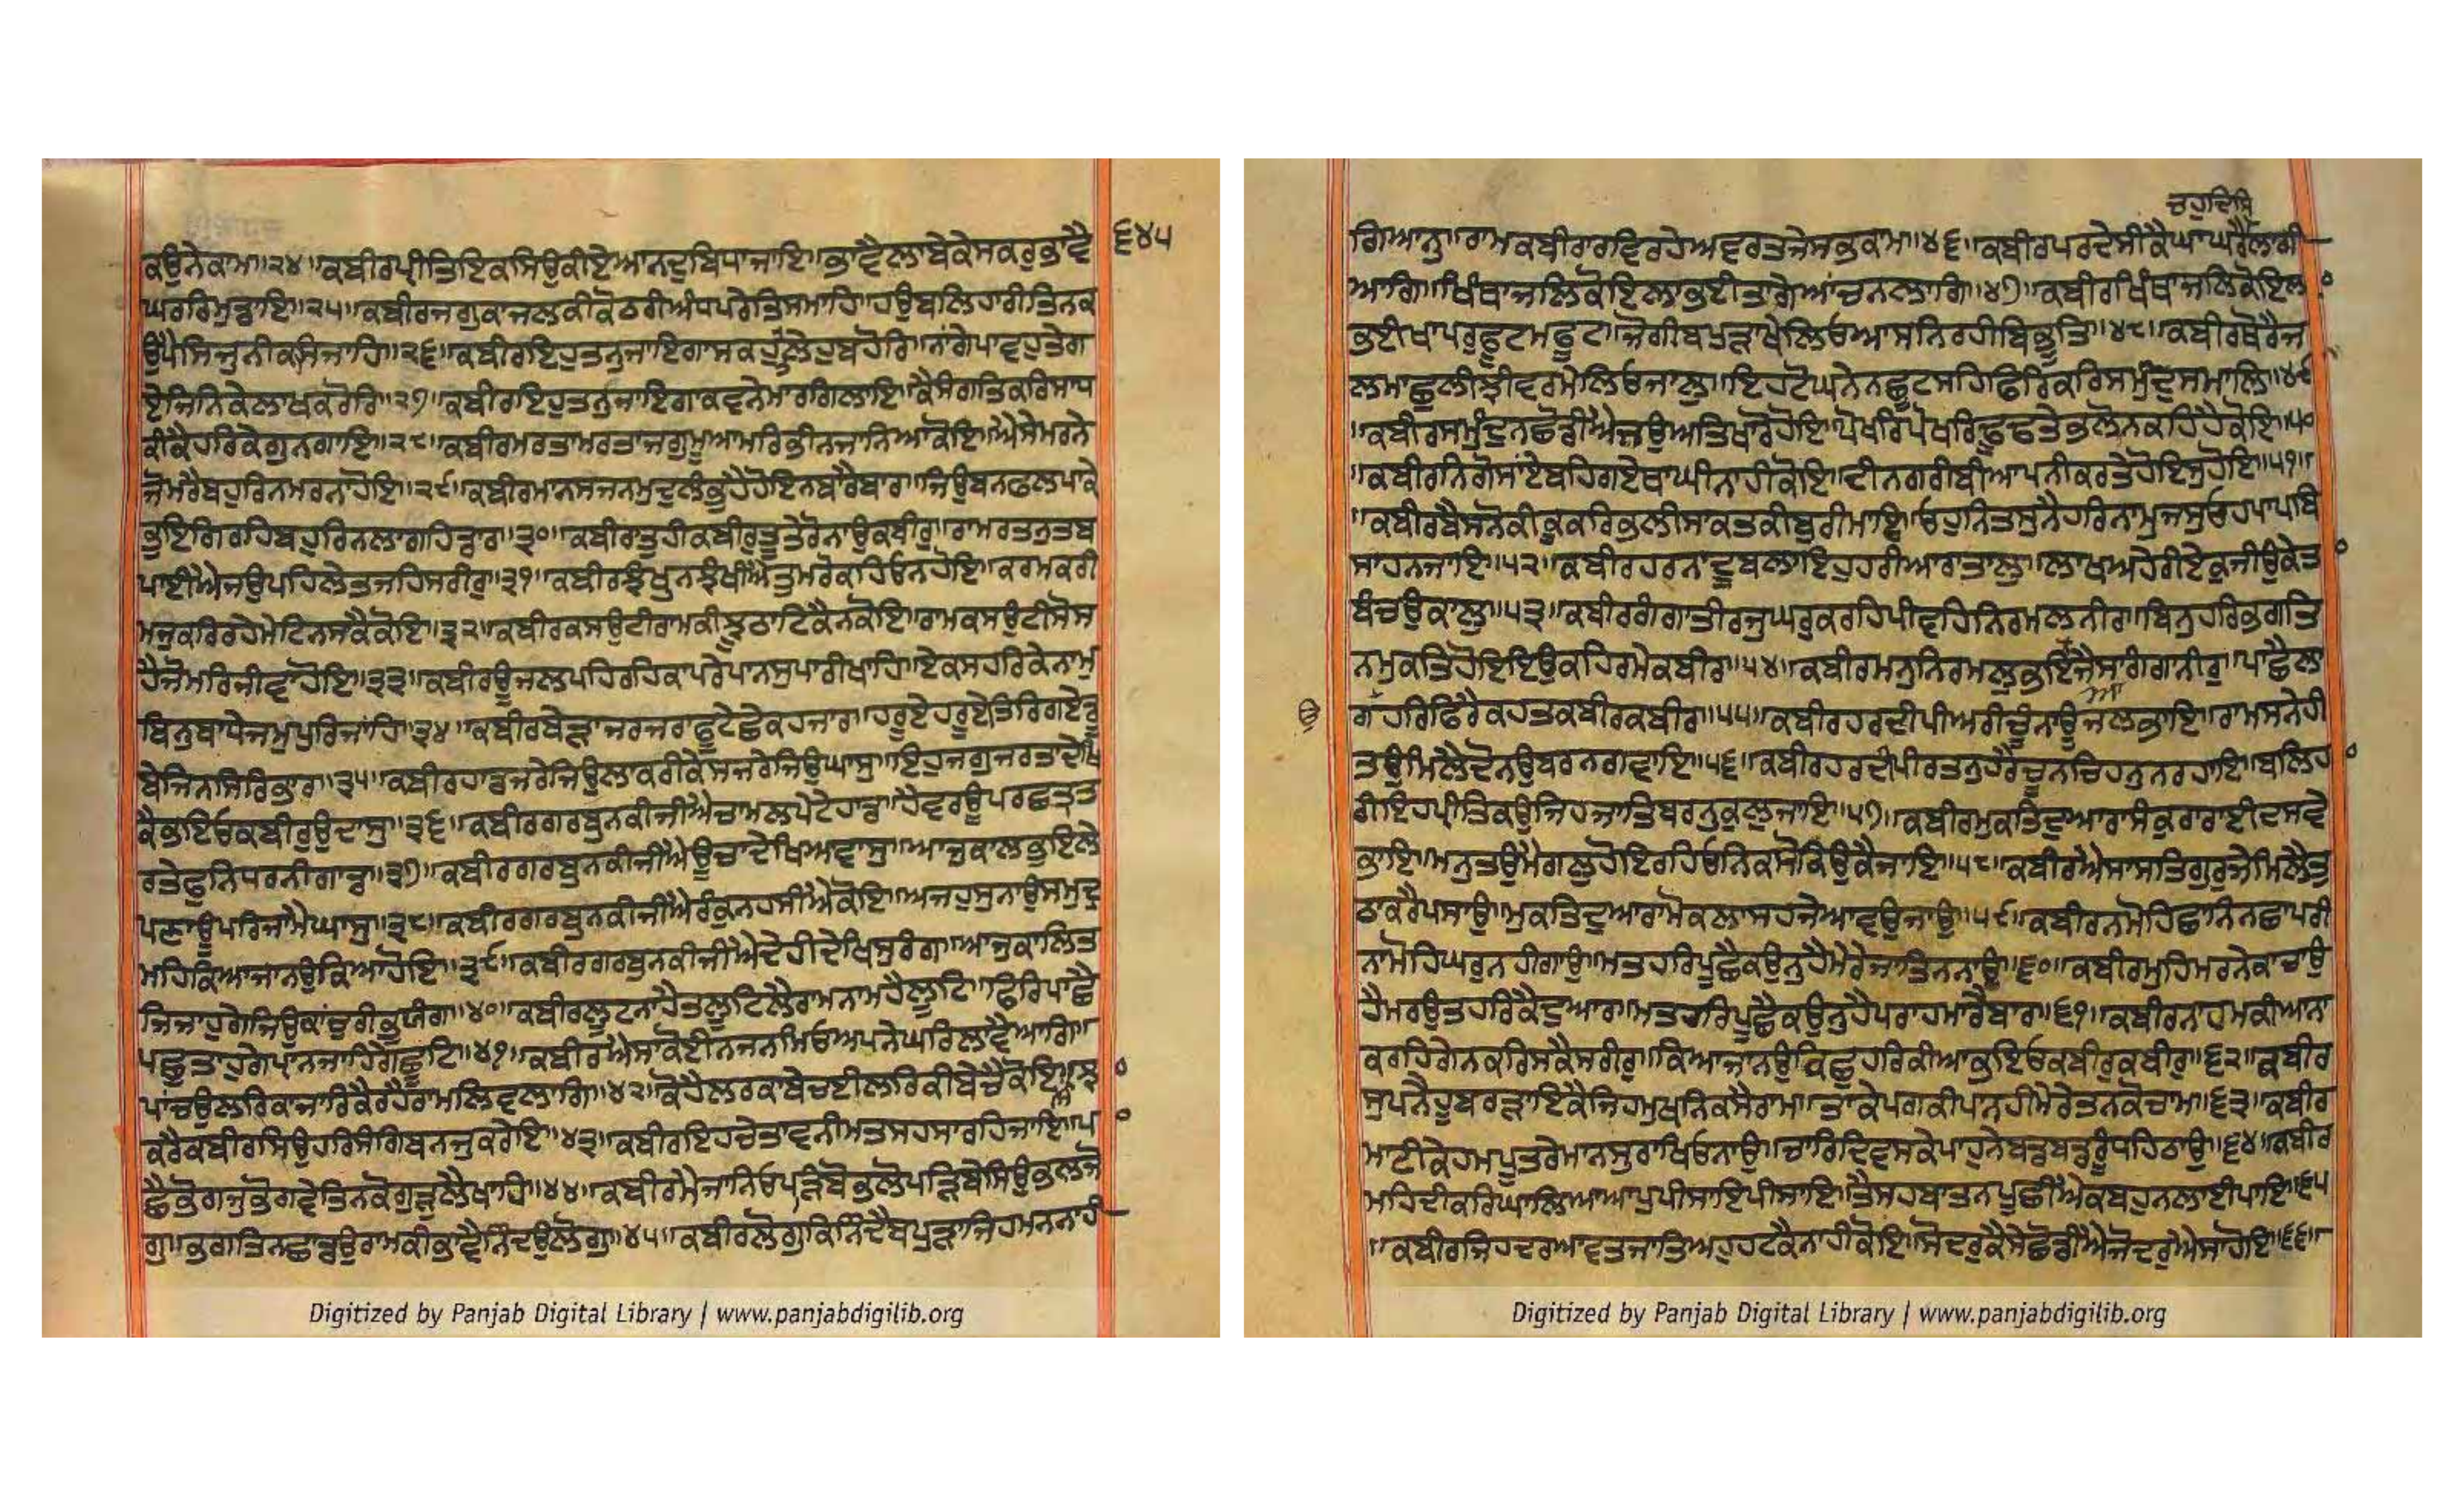 ਕਉਨੇਕਾਮ॥੨੪॥ਕਬੀਰਪ੍ਰੀਤਿਇਕਸਿਉਕੀਏਆਨਦੁਬਿਧਾਜਾਇ॥ਭਾਵੈਲਾਂਬੇਕੇਸਕਰੁਭਾਵੈ
੬੪੫
ਘਰਰਿਮੁਡਾਇ॥੨੫॥ਕਬੀਰਜਗੁਕਾਜਲਕੀਕੋਠਰੀਅੰਧਪਰੇਤਿਸਮਾਹਿ॥ਹਉਬਲਿਹਾਰੀਤਿਨਕ
ਉਪੈਸਿਜੁਨੀਕਸਿਜਾਹਿ॥੨੬॥ਕਬੀਰਇਹੁਤਨੁਜਾਇਗਾਸਕਹੁਲੇਹੁਬਹੋਰਿ॥ਨਾਂਗੇਪਾਵਹੁਤੇਗ
ਏਜਿਨਿਕੇਲਾਖਕਰੋਰਿ॥੨੭॥ਕਬੀਰਇਹੁਤਨੁਜਾਇਗਾਕਵਨੇਮਾਰਗਿਲਾਇ॥ਕੈਸੰਗਤਿਕਰਿਸਾਧ
ਕੀਕੈਹਰਿਕੇਗੁਨਗਾਇ॥੨੮॥ਕਬੀਰਮਰਤਾਮਰਤਾਜਗੁਮੁਆਮਰਿਭੀਨਜਾਨਿਆਕੋਇ॥ਐਸੇਮਰਨੇ
ਜੋਮਰੈਬਹੁਰਿਨਮਰਨਾਹੋਇ॥੨੯॥ਕਬੀਰਮਾਨਸਜਨਮੁਦੁਲੰਭੁਹੈਹੋਇਨਬਾਰੈਬਾਰ॥ਜਿਉਬਨਫਲਪਾਕੇ
ਭੁਇਗਿਰਹਿਬਹੁਰਿਨਲਾਗਹਿਡਾਰ॥੩੦॥ਕਬੀਰਾਤੁਹੀਕਬੀਰੁਤੂਤੇਰੋਨਾਉਕਬੀਰੁ॥ਰਾਮਰਤਨੁਤਬ
ਪਾਈਐਜਉਪਹਿਲੇਤਜਹਿਸਰੀਰੁ॥੩੧॥ਕਬੀਰਝੰਖੁਨਝੰਖੀਐਤੁਮਰੋਕਹਿਓਨਹੋਇ॥ਕਰਮਕਰੀ
ਮਜੁਕਰਿਰਹੇਮੇਟਿਨਸਕੈਕੋਇ॥੩੨॥ਕਬੀਰਕਸਉਟੀਰਾਮਕੀਝੂਠਾਟਿਕੈਨਕੋਇ॥ਰਾਮਕਸਉਟੀਸੋਸ
ਹੈਜੋਮਰਿਜੀਵਾਹੋਇ॥੩੩॥ਕਬੀਰਊਜਲਪਹਿਰਹਿਕਾਪਰੇਪਾਨਸੁਪਾਰੀਖਾਹਿ॥ਏਕਸਹਰਿਕੇਨਾਮ
ਬਿਨੁਬਾਧੇਜਮਪੁਰਿਜਾਂਹਿ॥੩੪॥ਕਬੀਰਬੇੜਾਜਰਜਰਾਫੂਟੇਛੇਕਹਜਾਰ॥ਹਰੂਏਹਰੂਏਤਿਰਿਗਏਡੂ
ਬੇਜਿਨਸਿਰਿਭਾਰ॥੩੫॥ਕਬੀਰਹਾਡਜਰੇਜਿਉਲਾਕਰੀਕੇਸਜਰੇਜਿਉਘਾਸੁ॥ਇਹੁਜਗੁਜਰਤਾਦੇਖਿ
ਕੈਭਇਓਕਬੀਰੁਉਦਾਸੁ॥੩੬॥ਕਬੀਰਗਰਬੁਨਕੀਜੀਐਚਾਮਲਪੇਟੇਹਾਡ॥ਹੈਵਰਊਪਰਛਤ੍ਰਤ
ਰਤੇਫੁਨਿਧਰਨੀਗਾਡ॥੩੭॥ਕਬੀਰਗਰਬੁਨਕੀਜੀਐਊਚਾਦੇਖਿਅਵਾਸੁ॥ਆਜੁਕਾਲਭੁਇਲੇ
ਪਣਾਊਪਰਿਜਾਮੈਘਾਸੁ॥੩੮॥ਕਬੀਰਗਰਬੁਨਕੀਜੀਐਰੰਕੁਨਹਸੀਐਕੋਇ॥ਅਜਹੁਸੁਨਾਉਸਮੁਦ੍ਰ
ਮਹਿਕਿਆਜਾਨਉਕਿਆਹੋਇ॥੩੯॥ਕਬੀਰਗਰਬੁਨਕੀਜੀਐਦੇਹੀਦੇਖਿਸੁਰੰਗ॥ਆਜੁਕਾਲਿਤ
ਜਿਜਾਹੁਗੇਜਿਉਕਾਂਚੁਰੀਭੁਯੰਗ॥੪੦॥ਕਬੀਰਲੂਟਨਾਹੈਤਲੂਟਿਲੈਰਾਮਨਾਮਹੈਲੂਟਿ॥ਫਿਰਿਪਾਛੈ
ਪਛੁਤਾਹੁਗੇਪ੍ਰਾਨਜਾਹਿਗੇਛੂਟਿ॥੪੧॥ਕਬੀਰਐਸਾਕੋਈਨਜਨਮਿਓਅਪਨੇਘਰਿਲਾਵੈਆਗਿ॥
ਪਾਂਚਉਲਰਿਕਾਜਾਰਿਕੈਰਹੈਰਾਮਲਿਵਲਾਗਿ॥੪੨॥ਕੋਹੈਲਰਕਾਬੇਚਈਲਰਿਕੀਬੇਚੈਕੋਇ॥ਸਾਝ
ਕਰੈਕਬੀਰਸਿਉਹਰਿਸੰਗਿਬਨਜੁਕਰੇਇ॥੪੩॥ਕਬੀਰਇਹਚੇਤਾਵਨੀਮਤਸਹਸਾਰਹਿਜਾਇ॥ਪਾ
ਛੈਭੋਗਜੁਭੋਗਵੇਤਿਨਕੋਗੁੜੁਲੈਖਾਹਿ॥੪੪॥ਕਬੀਰਮੈਜਾਨਿਓਪੜਿਬੋਭਲੋਪੜਿਬੇਸਿਉਭਲਜੋ
ਗੁ॥ਭਗਤਿਨਛਾਡਉਰਾਮਕੀਭਾਵੈਨਿੰਦਉਲੋਗੁ॥੪੫॥ਕਬੀਰਲੋਗੁਕਿਨਿੰਦੈਬਪੁੜਾਜਿਹਮਨਨਾਹੀ
ਚਹੁਦਿਸਿ
ਗਿਆਨੁ॥ਰਾਮਕਬੀਰਾਰਵਿਰਹੇਅਵਰਤਜੇਸਭਕਾਮ॥੪੬॥ਕਬੀਰਪਰਦੇਸੀਕੈਘਾਘਰੈਲਾਗੀ
ਆਗਿ॥ਖਿੰਥਾਜਲਿਕੋਇਲਾਭਈਤਾਗੇਆਂਚਨਲਾਗਿ॥੪੭॥ਕਬੀਰਖਿੰਥਾਜਲਿਕੋਇਲ
ਭਈਖਾਪਰੁਫੂਟਮਫੂਟ॥ਜੋਗੀਬਪੁੜਾਖੇਲਿਓਆਸਨਿਰਹੀਬਿਭੂਤਿ॥੪੮॥ਕਬੀਰਥੋਰੈਜ
ਲਮਾਛੁਲੀਝੀਵਰਮੇਲਿਓਜਾਲੁ॥ਇਹਟੋਘਨੇਨਛੂਟਸਹਿਫਿਰਿਕਰਿਸਮੁੰਦੁਸਮਾਲਿ॥੪੯
॥ਕਬੀਰਸਮੁੰਦੁਨਛੋਡੀਐਜਉਅਤਿਖਾਰੋਹੋਇ॥ਪੋਖਰਿਪੋਖਰਿਢੂਢਤੇਭਲੋਨਕਹਿਹੈਕੋਇ॥੫੦
॥ਕਬੀਰਨਿਗੋਸਾਂਏਬਹਿਗਏਥਾਘੀਨਾਹੀਕੋਇ॥ਦੀਨਗਰੀਬੀਆਪਨੀਕਰਤੇਹੋਇਸੁਹੋਇ॥੫੧॥
॥ਕਬੀਰਬੈਸਨੋਕੀਕੂਕਰਿਭਲੀਸਾਕਤਕੀਬੁਰੀਮਾਇ॥ਓਹੁਨਿਤਸੁਨੈਹਰਿਨਾਮੁਜਸੁਓਹਪਾਪਬਿ
ਸਾਹਨਜਾਇ॥੫੨॥ਕਬੀਰਹਰਨਾਦੂਬਲਾਇਹੁਹਰੀਆਰਾਤਾਲੁ॥ਲਾਖਅਹੇਰੀਏਕੁਜੀਉਕੇਤ
ਬੰਚਉਕਾਲੁ॥੫੩॥ਕਬੀਰਗੰਗਾਤੀਰਜੁਘਰੁਕਰਹਿਪੀਵਹਿਨਿਰਮਲਨੀਰ॥ਬਿਨੁਹਰਿਭਗਤਿ
ਨਮੁਕਤਿਹੋਇਇਉਕਹਿਰਮੇਕਬੀਰ॥੫੪॥ਕਬੀਰਮਨੁਨਿਰਮਲੁਭਇਆਜੈਸਾਗੰਗਨੀਰੁ॥ਪਾਛੈਲਾ
ਗੋਹਰਿਫਿਰੈਕਹਤਕਬੀਰਕਬੀਰ॥੫੫॥ਕਬੀਰਹਰਦੀਪੀਅਰੀਚੂੰਨਾਊਜਲਭਾਇ॥ਰਾਮਸਨੇਹੀ
ਤਉਮਿਲੈਦੋਨਉਬਰਨਗਵਾਇ॥੫੬॥ਕਬੀਰਹਰਦੀਪੀਰਤਨੁਹਰੈਚੂਨਚਿਹਨੁਨਰਹਾਇ॥ਬਲਿਹ
ਰੀਇਹਪ੍ਰੀਤਿਕਉਜਿਹਜਾਤਿਬਰਨੁਕੁਲੁਜਾਇ॥੫੭॥ਕਬੀਰਮੁਕਤਿਦੁਆਰਾਸੰਕੁਰਾਰਾਈਦਸਵੇ
ਭਾਇ॥ਮਨੁਤਉਮੈਗਲੁਹੋਇਰਹਿਓਨਿਕਸੋਕਿਉਕੈਜਾਇ॥੫੮॥ਕਬੀਰਐਸਾਸਤਿਗੁਰੁਜੇਮਿਲੈਤੁ
ਠਾਕਰੈਪਸਾਉ॥ਮੁਕਤਿਦੁਆਰਾਮੋਕਲਾਸਹਜੇਆਵਉਜਾਉ॥੫੯॥ਕਬੀਰਨਮੋਹਿਛਾਨਿਨਛਾਪਰੀ
ਨਾਮੋਹਿਘਰੁਨਹੀਗਾਉ॥ਮਤਹਰਿਪੂਛੈਕਉਨੁਹੈਮੇਰੇਜਾਤਿਨਨਾਉ॥੬੦॥ਕਬੀਰਮੁਹਿਮਰਨੇਕਾਚਾਉ
ਹੈਮਰਉਤਹਰਿਕੈਦੁਆਰ॥ਮਤਹਰਿਪੂਛੈਕਉਨੁਹੈਪਰਾਹਮਾਰੈਬਾਰ॥੬੧॥ਕਬੀਰਨਾਹਮਕੀਆਨ
ਕਰਹਿਗੇਨਕਰਿਸਕੈਸਰੀਰੁ॥ਕਿਆਜਾਨਉਕਿਛੁਹਰਿਕੀਆਭਇਓਕਬੀਰੁਕਬੀਰੁ॥੬੨॥ਕਬੀਰ
ਸੁਪਨੈਹੂਬਰੜਾਇਕੈਜਿਹਮੁਖਨਿਕਸੈਰਾਮ॥ਤਾਕੇਪਗਕੀਪਾਨਹੀਮੇਰੇਤਨਕੋਚਾਮ॥੬੩॥ਕਬੀਰ
ਮਾਟੀਕੇਹਮਪੂਤਰੇਮਾਨਸੁਰਾਖਿਓਨਾਉ॥ਚਾਰਿਦਿਵਸਕੇਪਾਹੁਨੇਬਡਬਡਰੂੰਧਹਿਠਾਉ॥੬੪॥ਕਬੀਰ
ਮਹਿਦੀਕਰਿਘਾਲਿਆਆਪੁਪੀਸਾਇਪੀਸਾਇ॥ਤੈਸਹਬਾਤਨਪੂਛੀਐਕਬਹੁਨਲਾਈਪਾਇ॥੬੫
॥ਕਬੀਰਜਿਹਦਰਆਵਤਜਾਤਿਅਹੁਹਟਕੈਨਾਹੀਕੋਇ॥ਸੋਦਰੁਕੈਸੇਛੋਡੀਐਜੋਦਰੁਐਸਾਹੋਇ॥੬੬॥
Digitized by Panjab Digital Library | www.panjabdigilib.org
Digitized by Panjab Digital Library | www.panjabdigilib.org